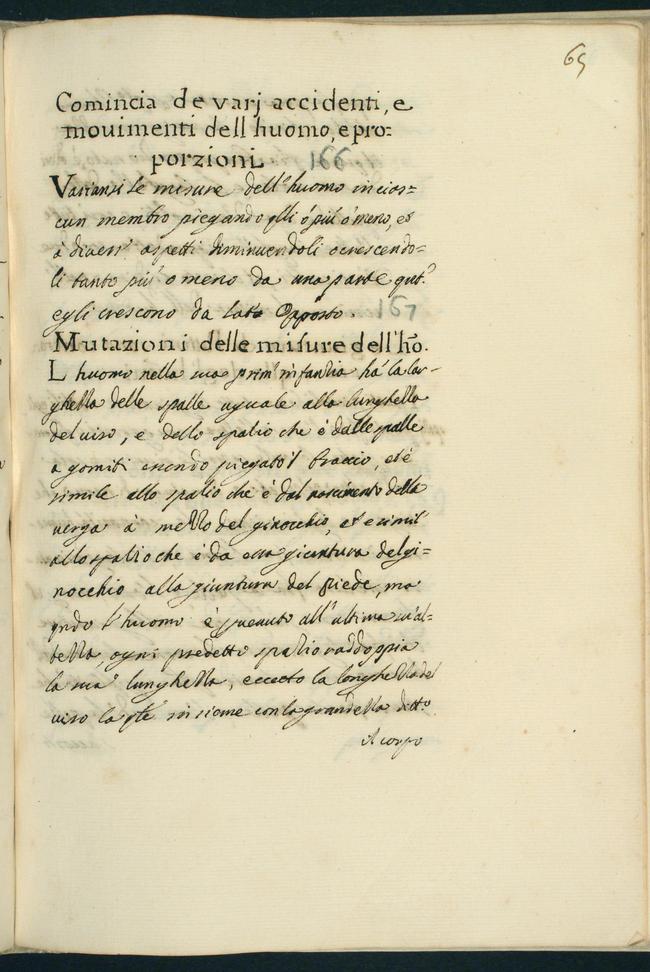 65
Comincia de varj accidenti, e
mouimenti dell huomo, e pro=
porzioni. 166.
Variansi le misure dell'huomo in cias=
cun membro piegandogli ó piú ó meno, et
à diversi aspetti diminuendoli o crescendo=
li tanto piu' o meno da una parte qnto
egli crescono da lato opposto. 167
Mutazioni delle misure dell'hõ.
L huomo nella sua prim' infantia há la lar-
ghezza delle spalle uguale alla lunghezza
del uiso, e dello spatio che é dalle spalle
a gomiti essendo piegato 'l braccio, et é
simile allo spatio che é dal nascimento della
verga à mezzo del ginocchio, et e simil'
allo spatio che é da essa giuntura del gi=
nocchio alla giuntura del piede, ma
qndo l'huomo è peruenuto all'ultima su' al=
tezza, ogni predetto spatio raddoppia
la sua lunghezza, eccetto la longhezza del
uiso la qle insieme con la grandezza di tto
il corpo